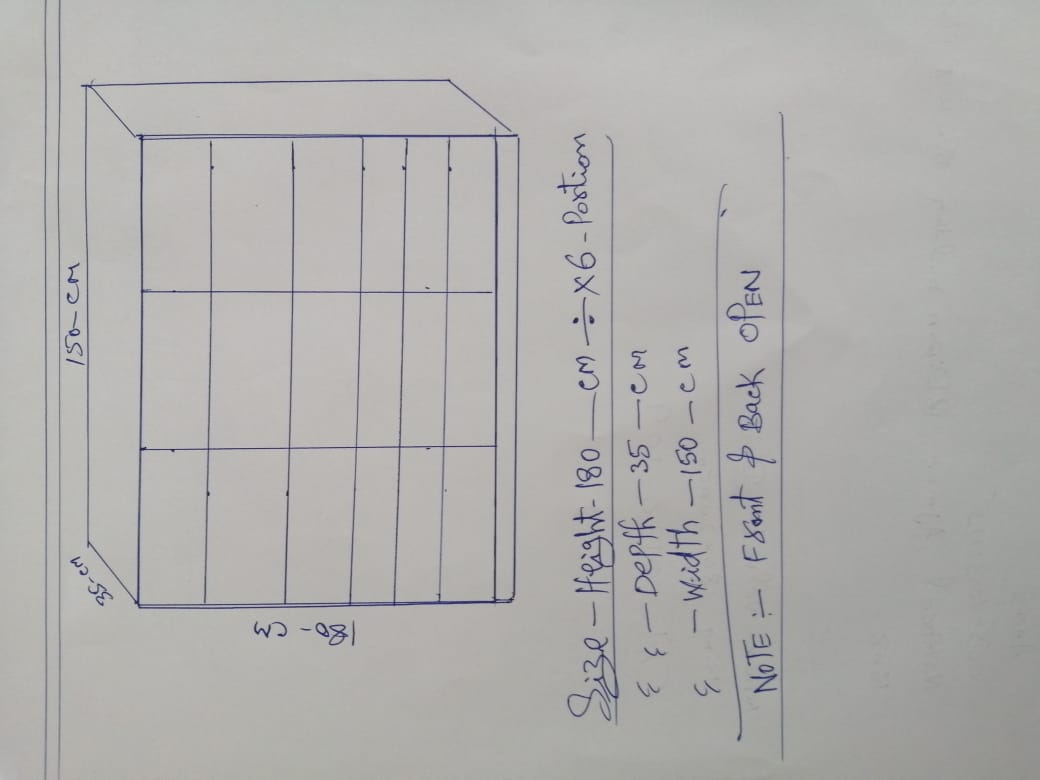 150-CM
35-CM
180-CM
Size - Height - 180 — CM ÷ X6 - Portion
" - Depth - 35 - CM
" - Width - 150 - CM
NOTE :- Front & Back OPEN